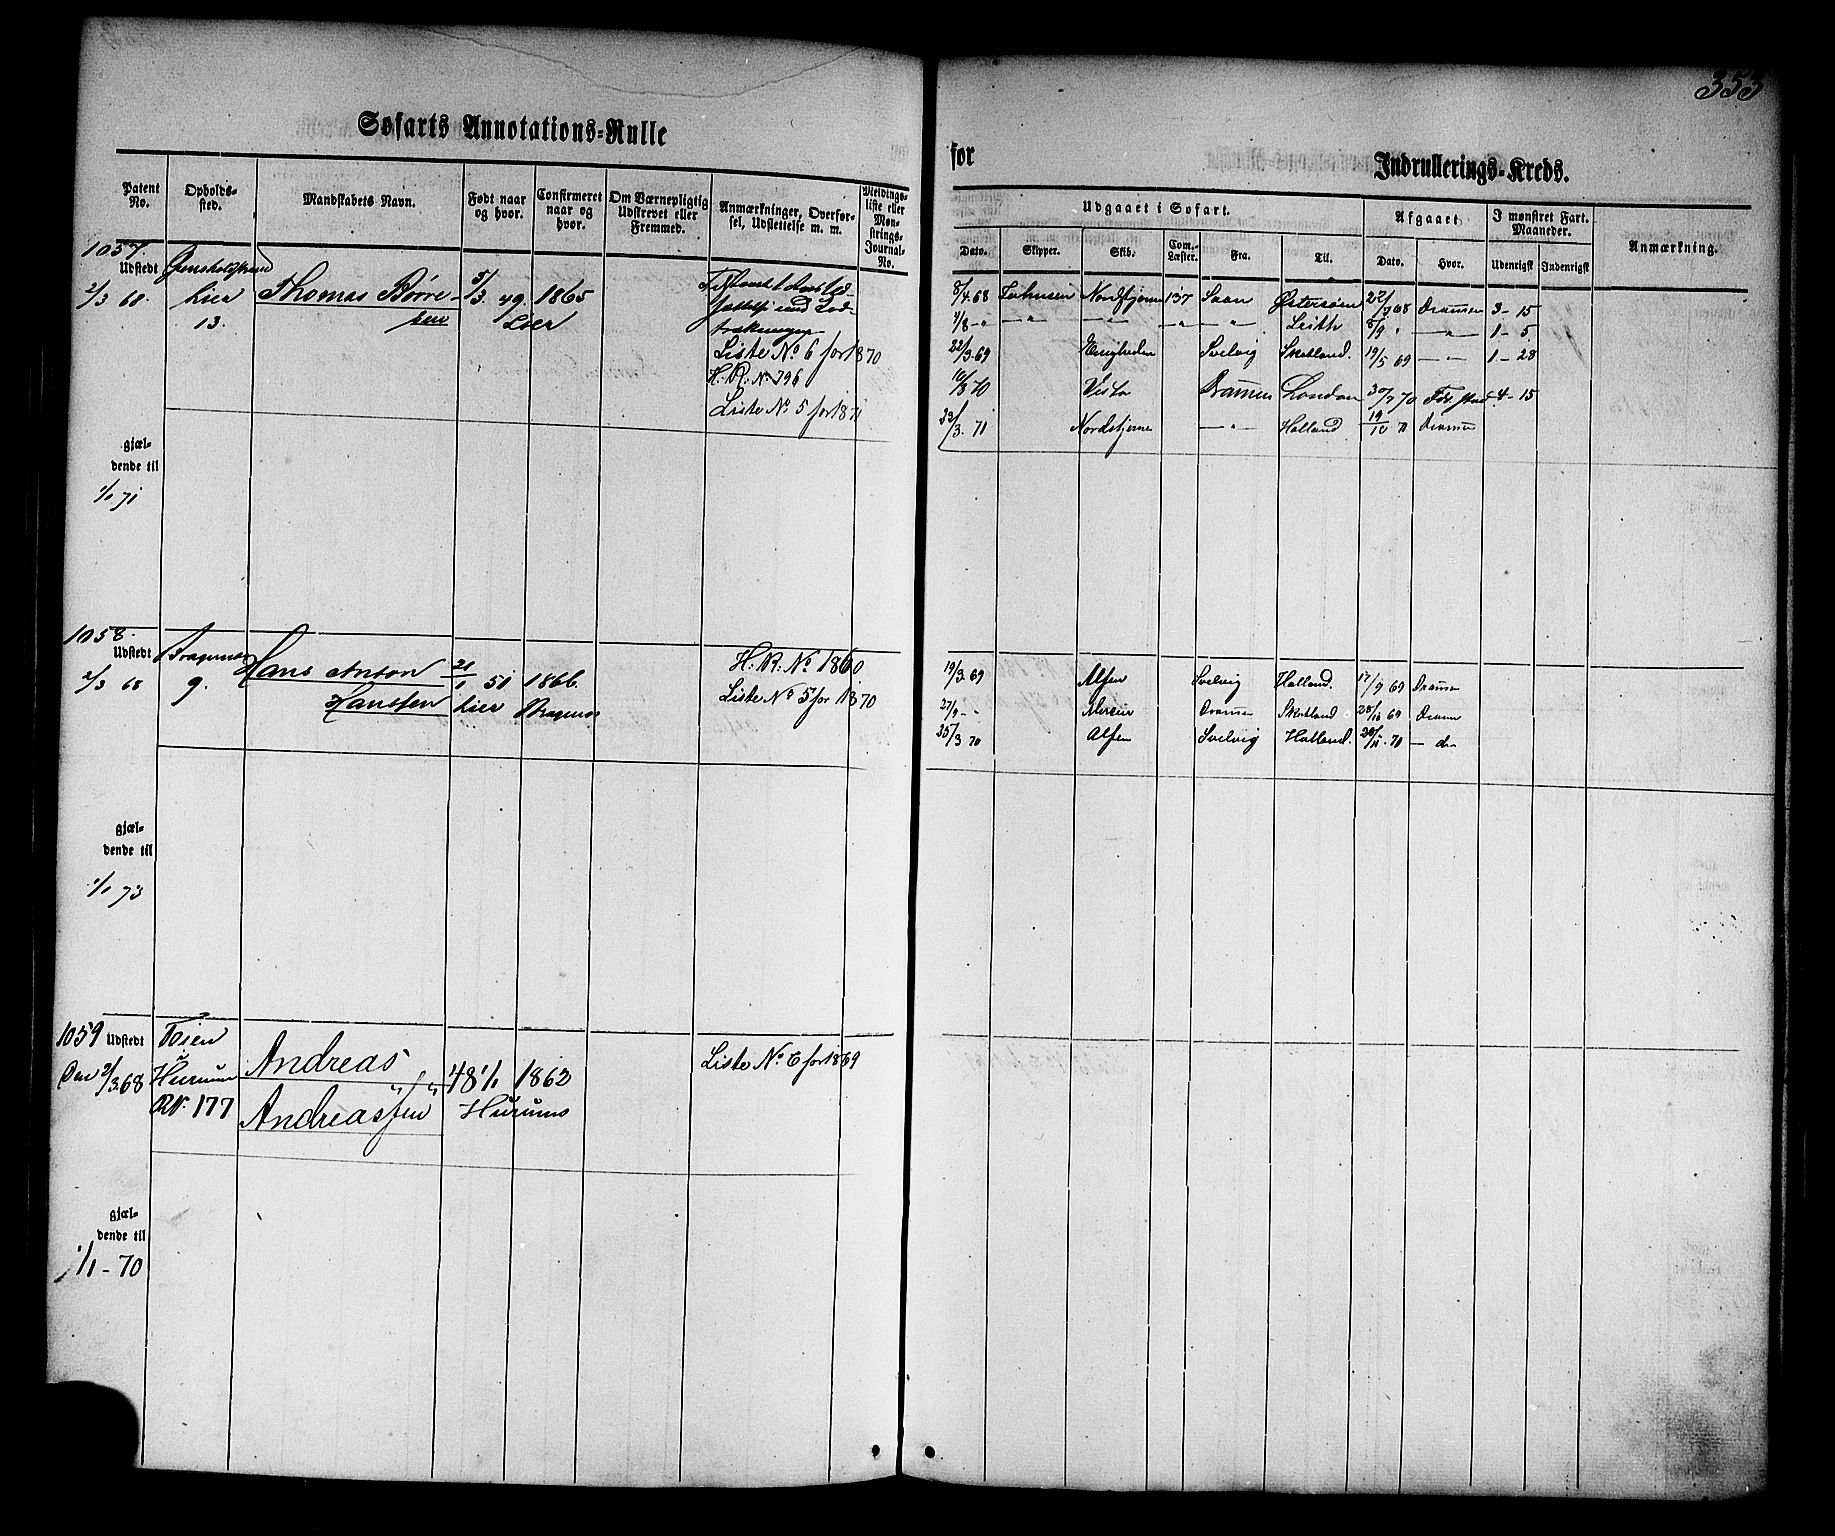 353
Søfarts Annotations-Rulle
for
Indrullerings-Kreds.
Patent No.
Opholds-sted.
Mandskabets Navn.
Født naar og hvor.
Confirmeret naar og hvor.
Om Værnepligtig Udskrevet eller Fremmed.
Anmærkninger, Overførsel, Udslettelse m. m.
Meldings-liste eller Mønstrings-Journal-No.
Udgaaet i Søfart.
Afgaaet
I mønstret Fart. Maaneder.
Anmærkning.
Dato. Skipper. Skib. Com.-Læster. Fra. Til. Dato. Hvor. Udenrigsk Indenrigsk
1057.
Udstedt
2/3 68.
Lier
13.
Thomas Børre-
sen
5/3. 49.
Lier
1865
Liste No 6 for 1870
H. R. No 796
Liste No 5 for 1871
8/4.68 Nordstjernen 137 Østersøen Drammen 3 - 15
4/8 - " — " — — " — " " Leith 8/9 " — " — 1 - 5
22/3.69 Enigheden Svelvig Skotland. 19/5 69 — " — 1 - 28
70 Vesta Drammen London 30/7 70 4 - 15
23/3. 71 Nordstjerne — " — Holland 19/10 71 Dramm
gjæl-
dende til
1/1 71
1058.
Udstedt
2/3 68
Bragernes
9.
Hans Anton
Hansen
21/1 51
Lier
1866.
Bragernes
H. R. No 1860.
Liste No 5 for 1870
19/3.69 Svelvig Holland. 17/9 69 Dramm
27/9 - " Dramm Skotland 28/10 69 Dramm
25/3 70 Svelvig Holland. 70 — do
gjæl-
dende til
1/1 73
1059
Udstedt
Den 2/3.68
Tøien
Hurum
RN. 177
Andreas
Andreassen
48 1/1
1862
Hurums
Liste No 6 for 1869
gjæl-
dende til
1/1 - 70